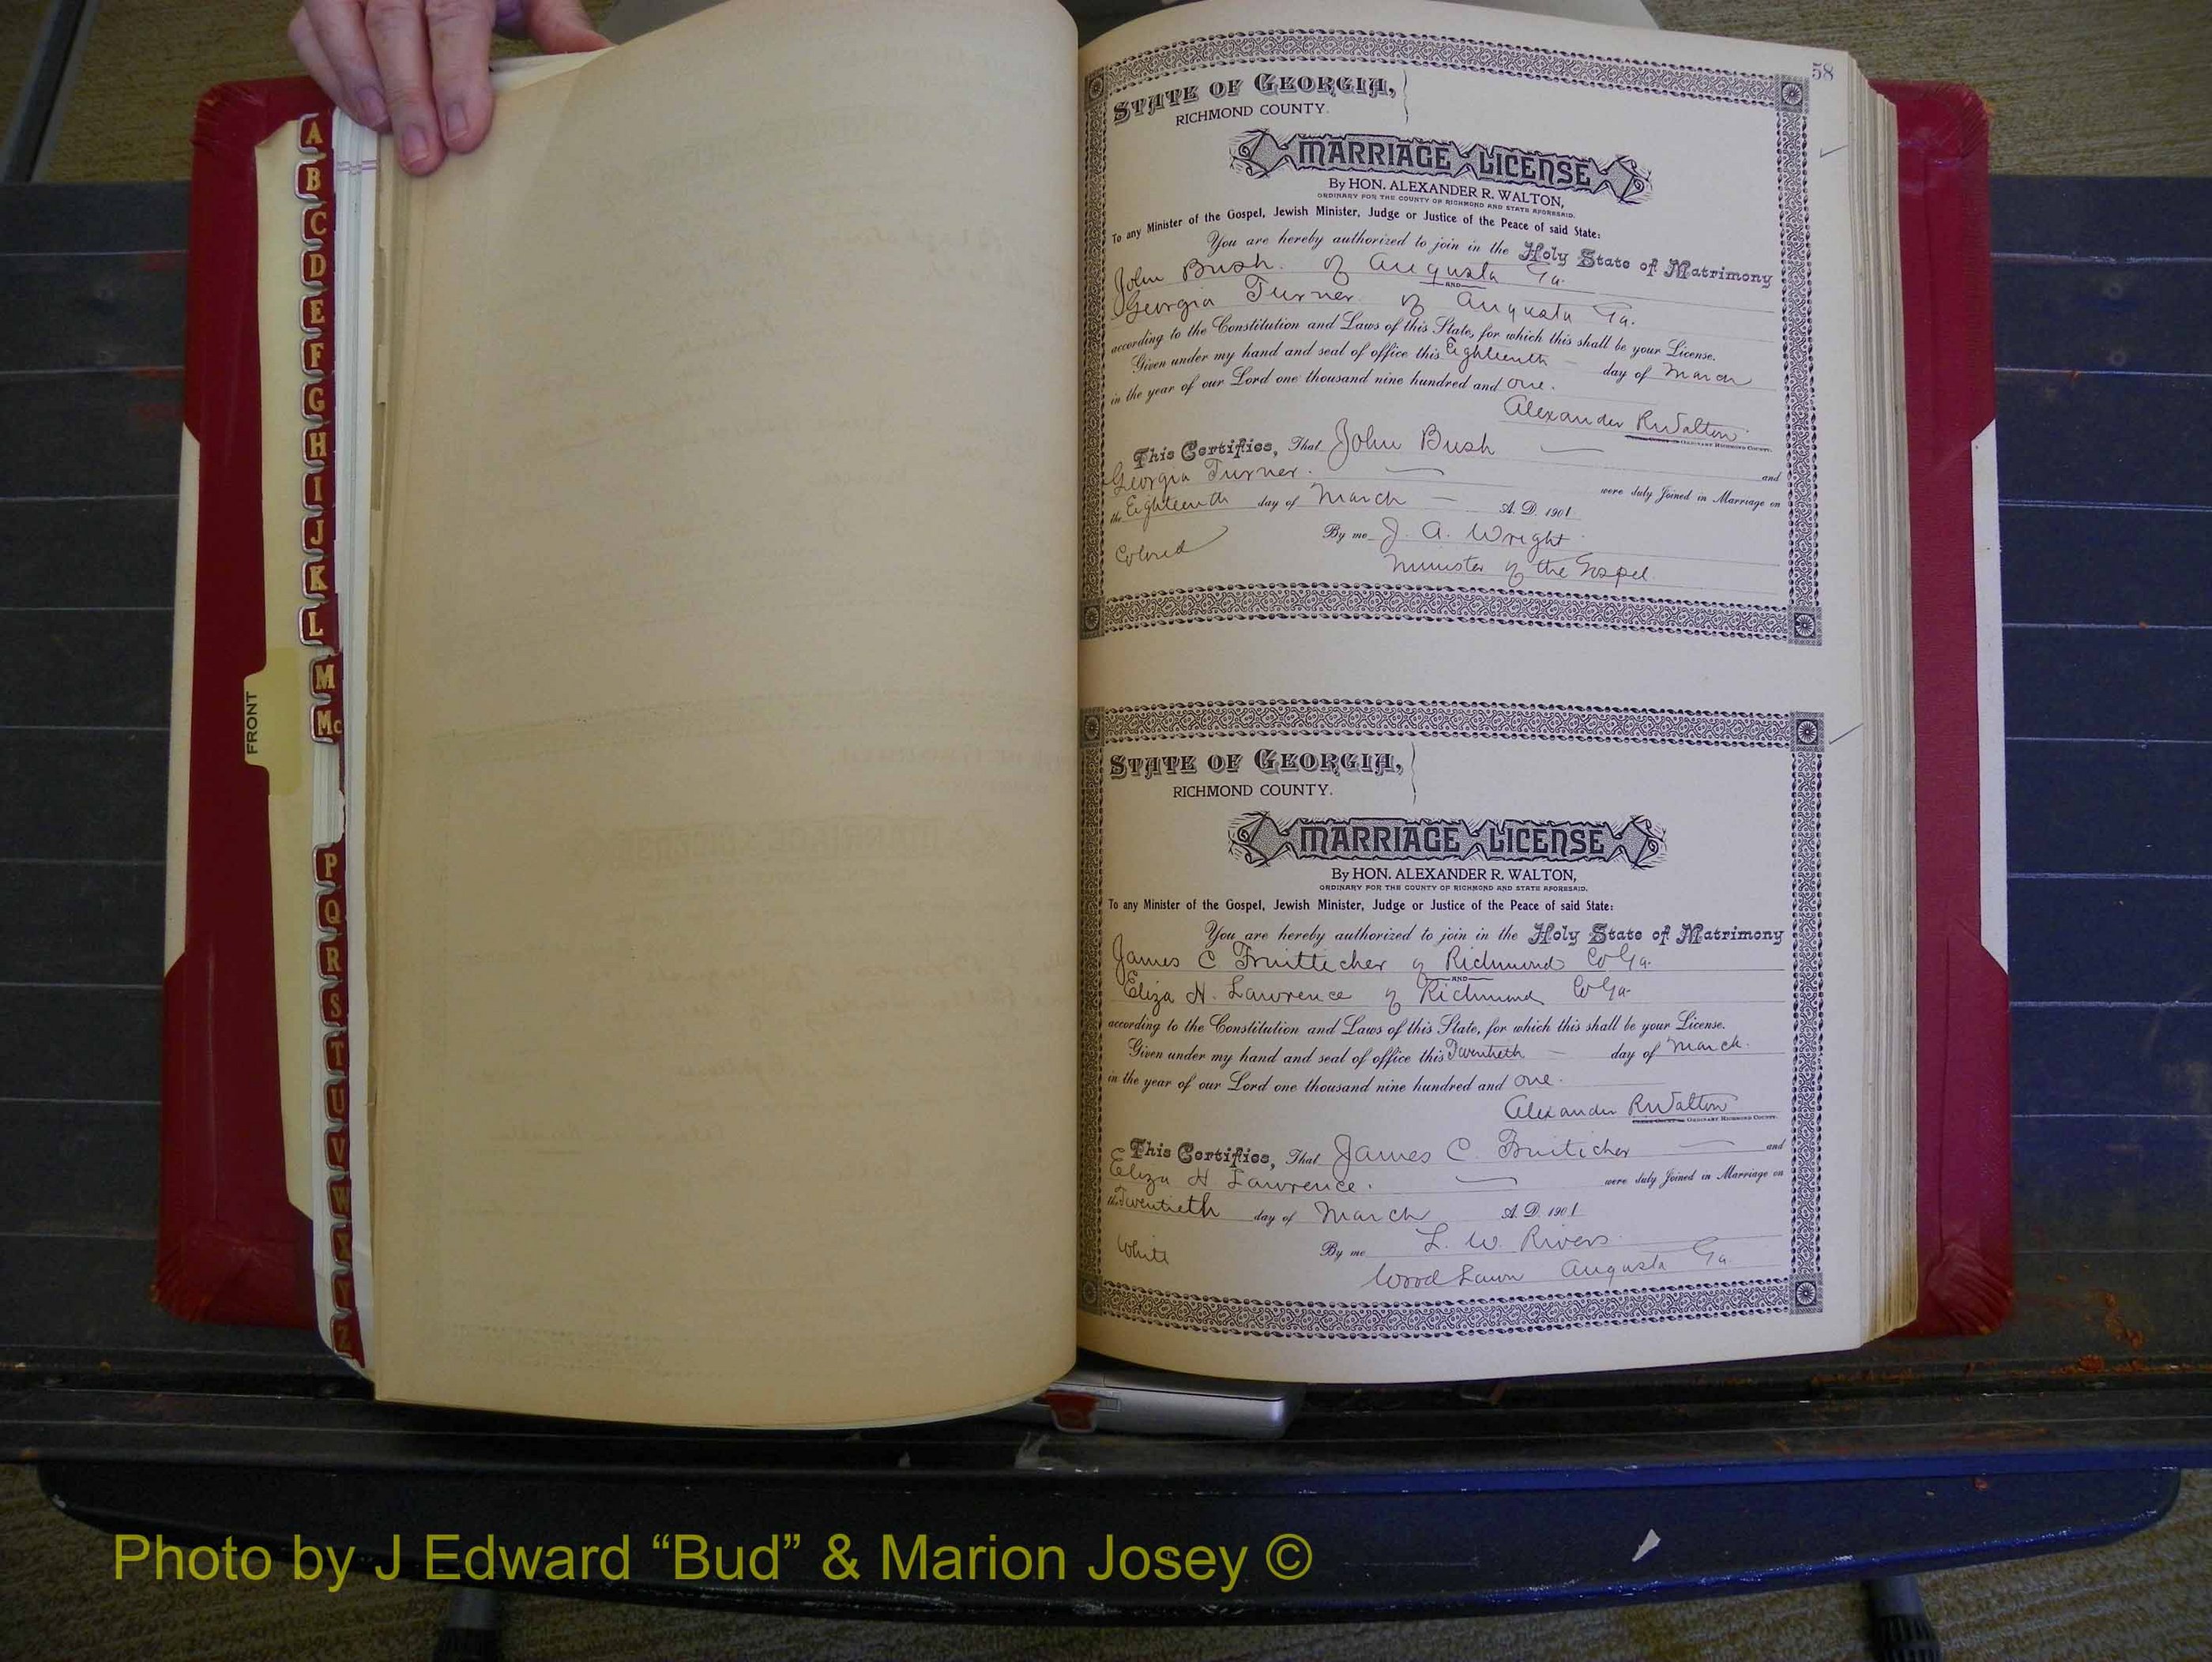 A
B
C
D
E
F
G
H
I
J
K
L
M
Mc
P
Q
R
S
T
U
V
W
X
Y
Z
FRONT
58
STATE OF GEORGIA,
RICHMOND COUNTY.
MARRIAGE LICENSE
By HON. ALEXANDER R. WALTON,
ORDINARY FOR THE COUNTY OF RICHMOND AND STATE AFORESAID.
To any Minister of the Gospel, Jewish Minister, Judge or Justice of the Peace of said State:
You are hereby authorized to join in the Holy State of Matrimony
John Bush of Augusta Ga.
AND
Georgia Turner of Augusta Ga.
according to the Constitution and Laws of this State, for which this shall be your License.
Given under my hand and seal of office this Eighteenth day of March
in the year of our Lord one thousand nine hundred and one.
Alexander R Walton
ORDINARY RICHMOND COUNTY.
This Certifies, That John Bush and
Georgia Turner. were duly Joined in Marriage on
the Eighteenth day of March A. D. 1901
By me J. A. Wright
Colored Minister of the Gospel.
STATE OF GEORGIA,
RICHMOND COUNTY.
MARRIAGE LICENSE
By HON. ALEXANDER R. WALTON,
ORDINARY FOR THE COUNTY OF RICHMOND AND STATE AFORESAID.
To any Minister of the Gospel, Jewish Minister, Judge or Justice of the Peace of said State:
You are hereby authorized to join in the Holy State of Matrimony
James C Fruittecher of Richmond Co Ga.
AND
Eliza H. Lawrence of Richmond Co Ga
according to the Constitution and Laws of this State, for which this shall be your License.
Given under my hand and seal of office this Twentieth day of March.
in the year of our Lord one thousand nine hundred and one.
Alexander R Walton
ORDINARY RICHMOND COUNTY.
This Certifies, That James C. Fruiticher and
Eliza H Lawrence. were duly Joined in Marriage on
the Twentieth day of March A. D. 1901
White By me L. W. Rivers
Wood Lawn Augusta Ga.
Photo by J Edward “Bud” & Marion Josey ©